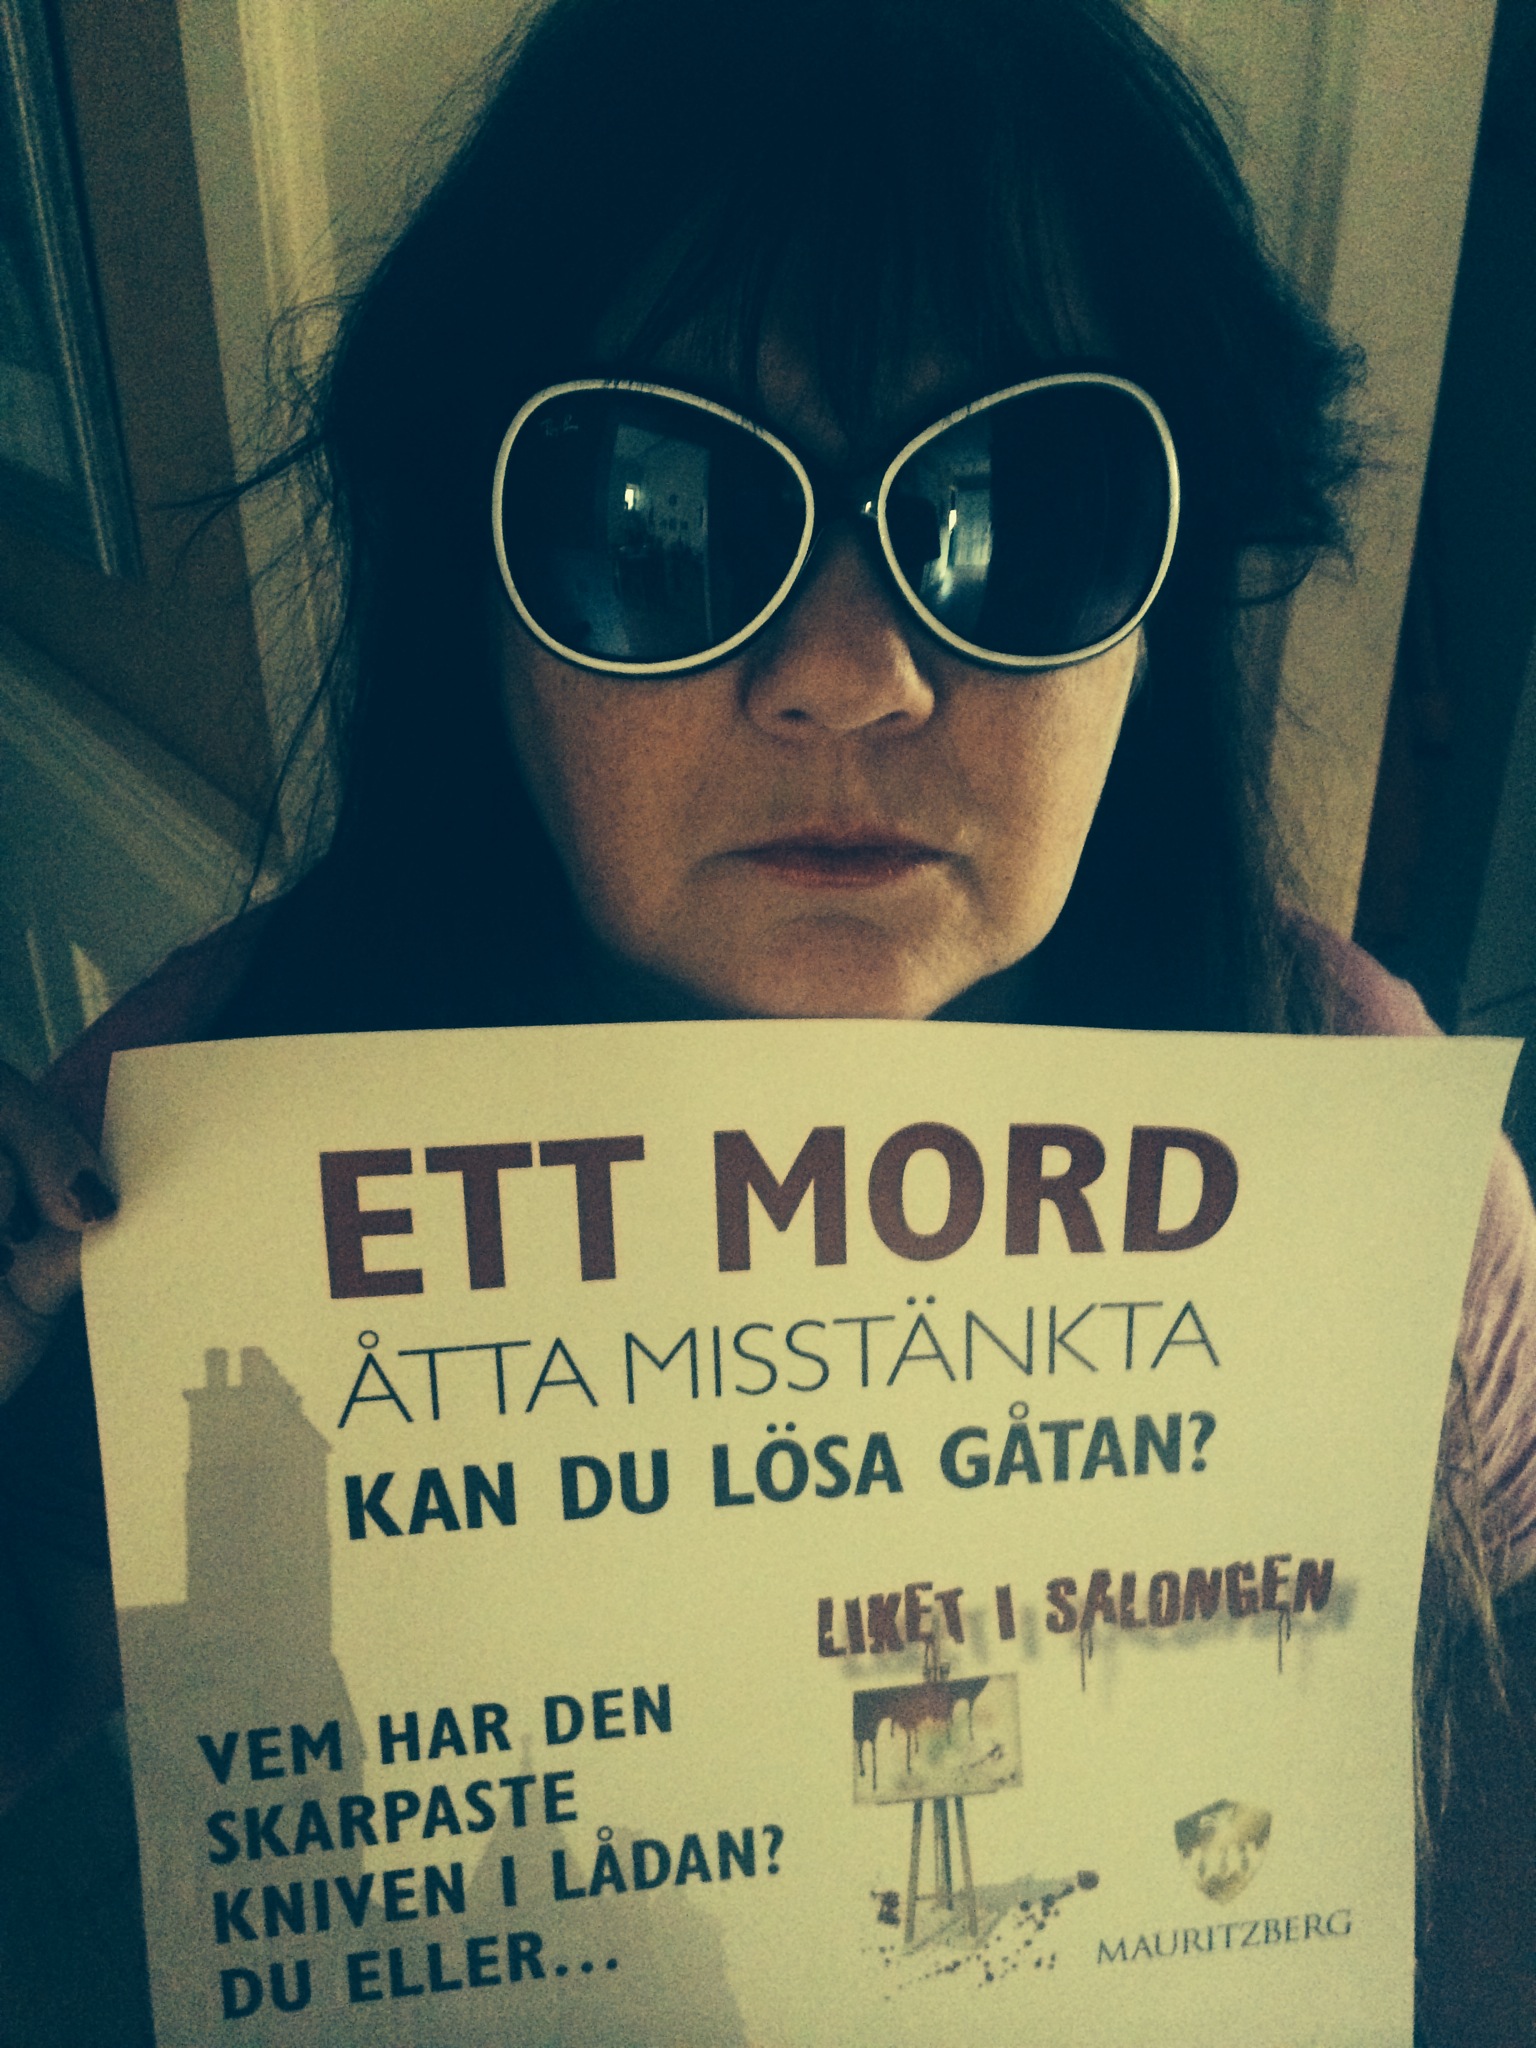 Ray-Ban
ETT MORD
ÅTTA MISSTÄNKTA
KAN DU LÖSA GÅTAN?
LIKET I SALONGEN
VEM HAR DEN
SKARPASTE
KNIVEN I LÅDAN?
DU ELLER...
MAURITZBERG